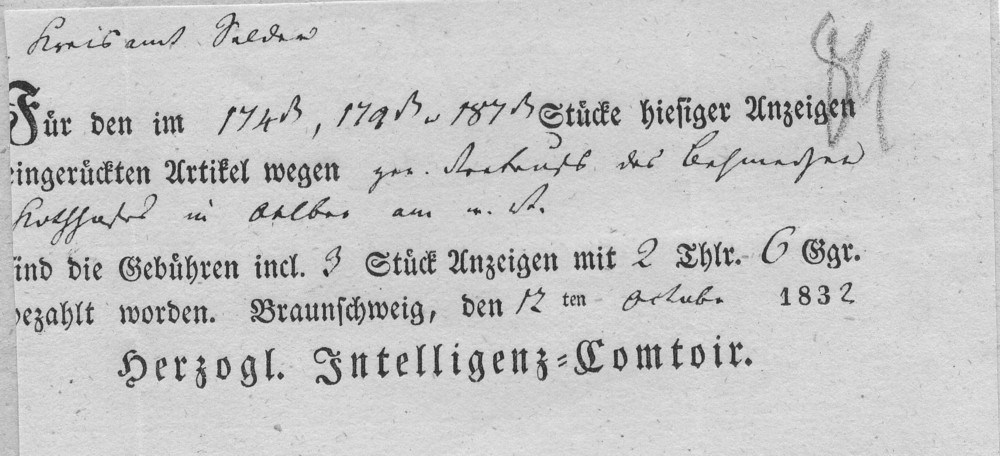 Kreisamt Salder
84
Für den im 174st, 179st u 187st Stücke hiesiger Anzeigen
eingerückten Artikel wegen ger. Verkaufs des
Kothhofes in Oelber am w. W.
sind die Gebühren incl. 3 Stück Anzeigen mit 2 Thlr. 6 Ggr.
bezahlt worden. Braunschweig, den 12 ten Octobr 1832
Herzogl. Intelligenz=Comtoir.